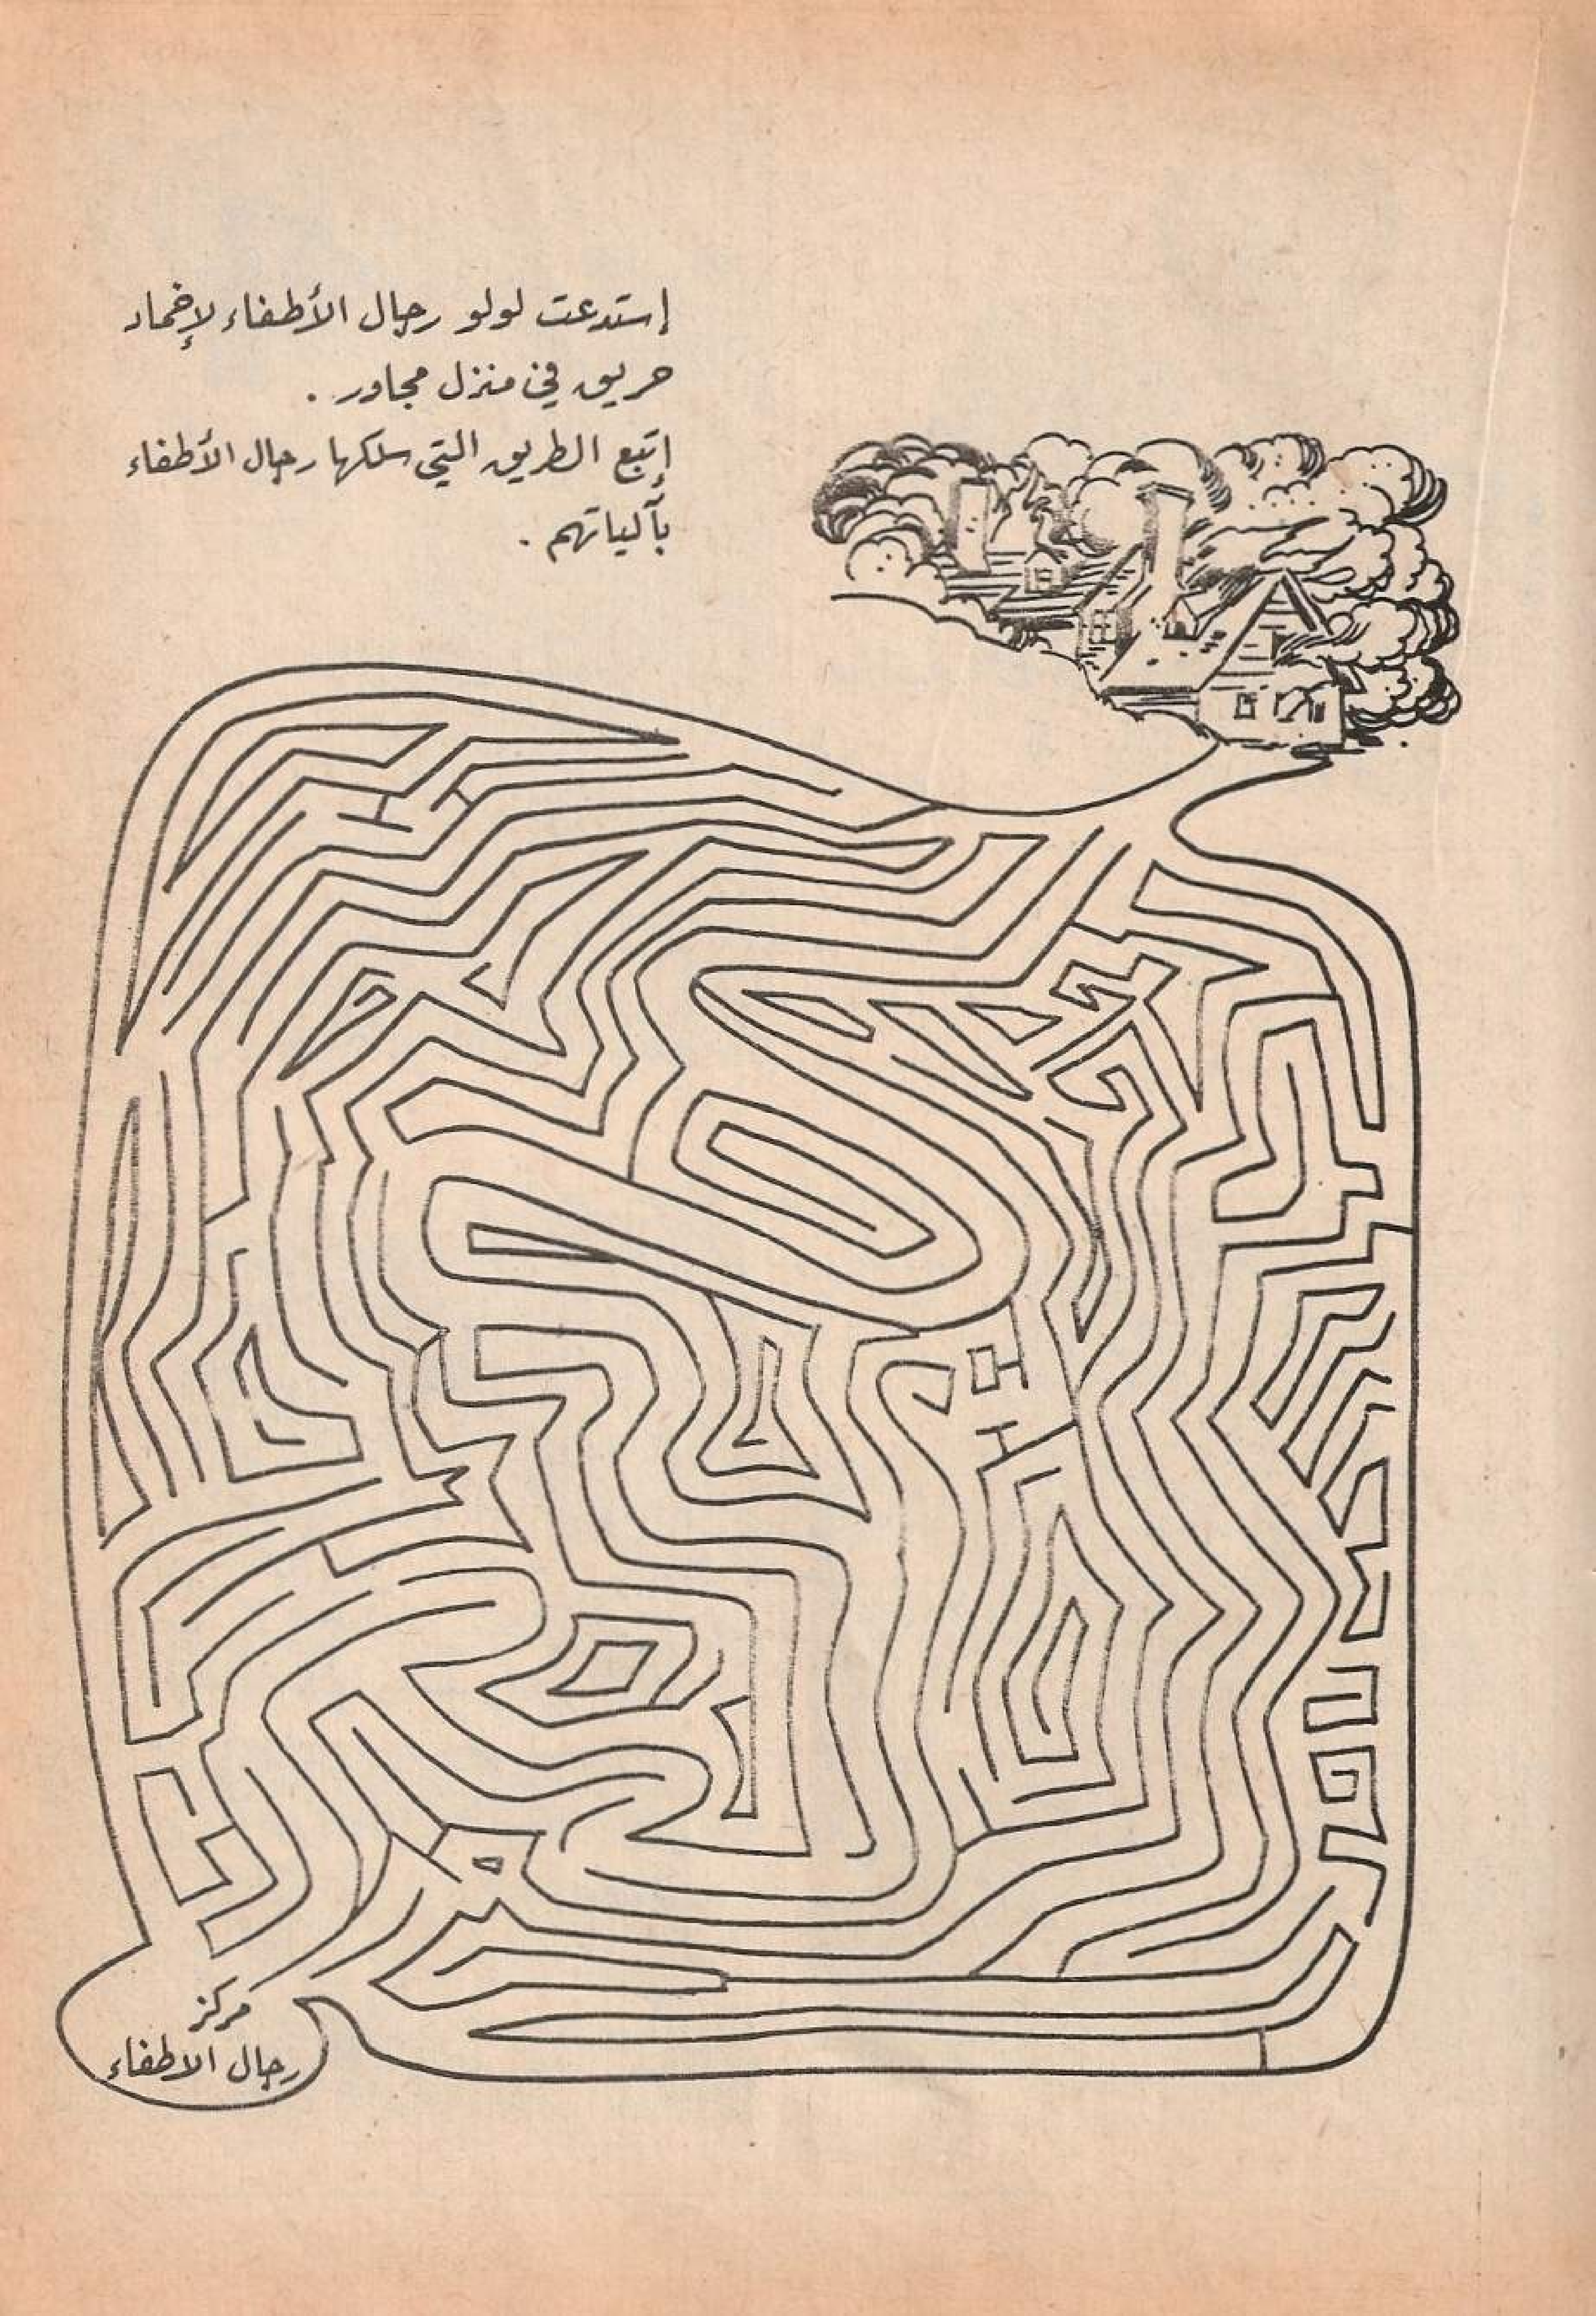 إستدعت لولو رجال الأطفاء لإخماد
حريق في منزل مجاور .
إتبع الطريق التي سلكها رجال الأطفاء
بآلياتهم .
مركز
رجال الاطفاء